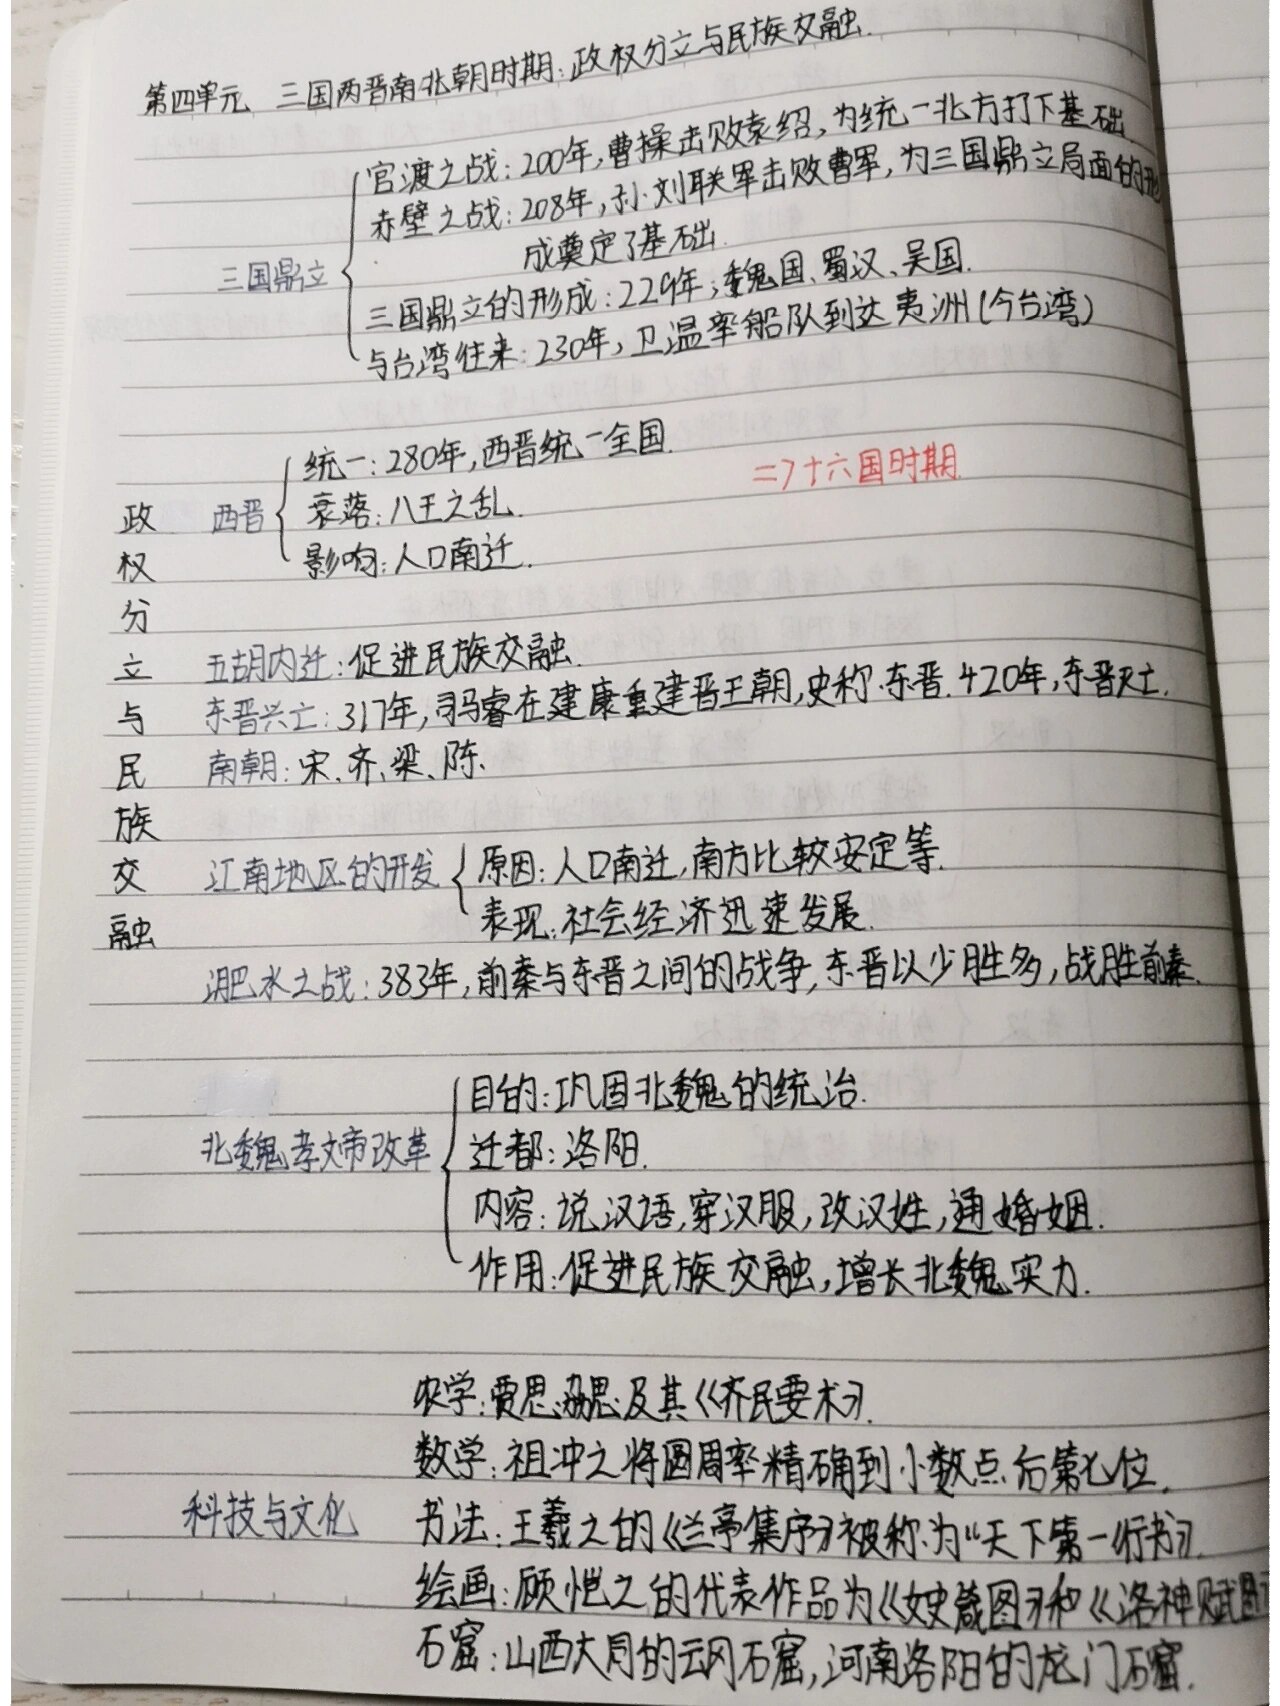 第四单元 三国两晋南北朝时期:政权分立与民族交融.
官渡之战:200年,曹操击败袁绍,为统一北方打下基础
赤壁之战:208年,孙·刘联军击败曹军,为三国鼎立局面的形
成奠定了基础.
三国鼎立
三国鼎立的形成:229年;魏国、蜀汉、吴国.
与台湾往来:230年,卫温率船队到达夷洲(今台湾)
政权分立与民族交融
统一:280年,西晋统一全国.
=>十六国时期
西晋
衰落:八王之乱.
影响:人口南迁.
五胡内迁:促进民族交融.
东晋兴亡:317年,司马睿在建康重建晋王朝,史称东晋.420年,东晋灭亡.
南朝:宋、齐、梁、陈.
江南地区的开发
原因:人口南迁,南方比较安定等.
表现:社会经济迅速发展.
淝水之战:383年,前秦与东晋之间的战争,东晋以少胜多,战胜前秦.
北魏孝文帝改革
目的:巩固北魏的统治.
迁都:洛阳.
内容:说汉语,穿汉服,改汉姓,通婚姻.
作用:促进民族交融,增长北魏实力.
科技与文化
农学:贾思勰及其《齐民要术》.
数学:祖冲之将圆周率精确到小数点后第七位.
书法:王羲之的《兰亭集序》被称为“天下第一行书》.
绘画:顾恺之的代表作品为《女史箴图》和《洛神赋图
石窟:山西大同的云冈石窟,河南洛阳的龙门石窟.